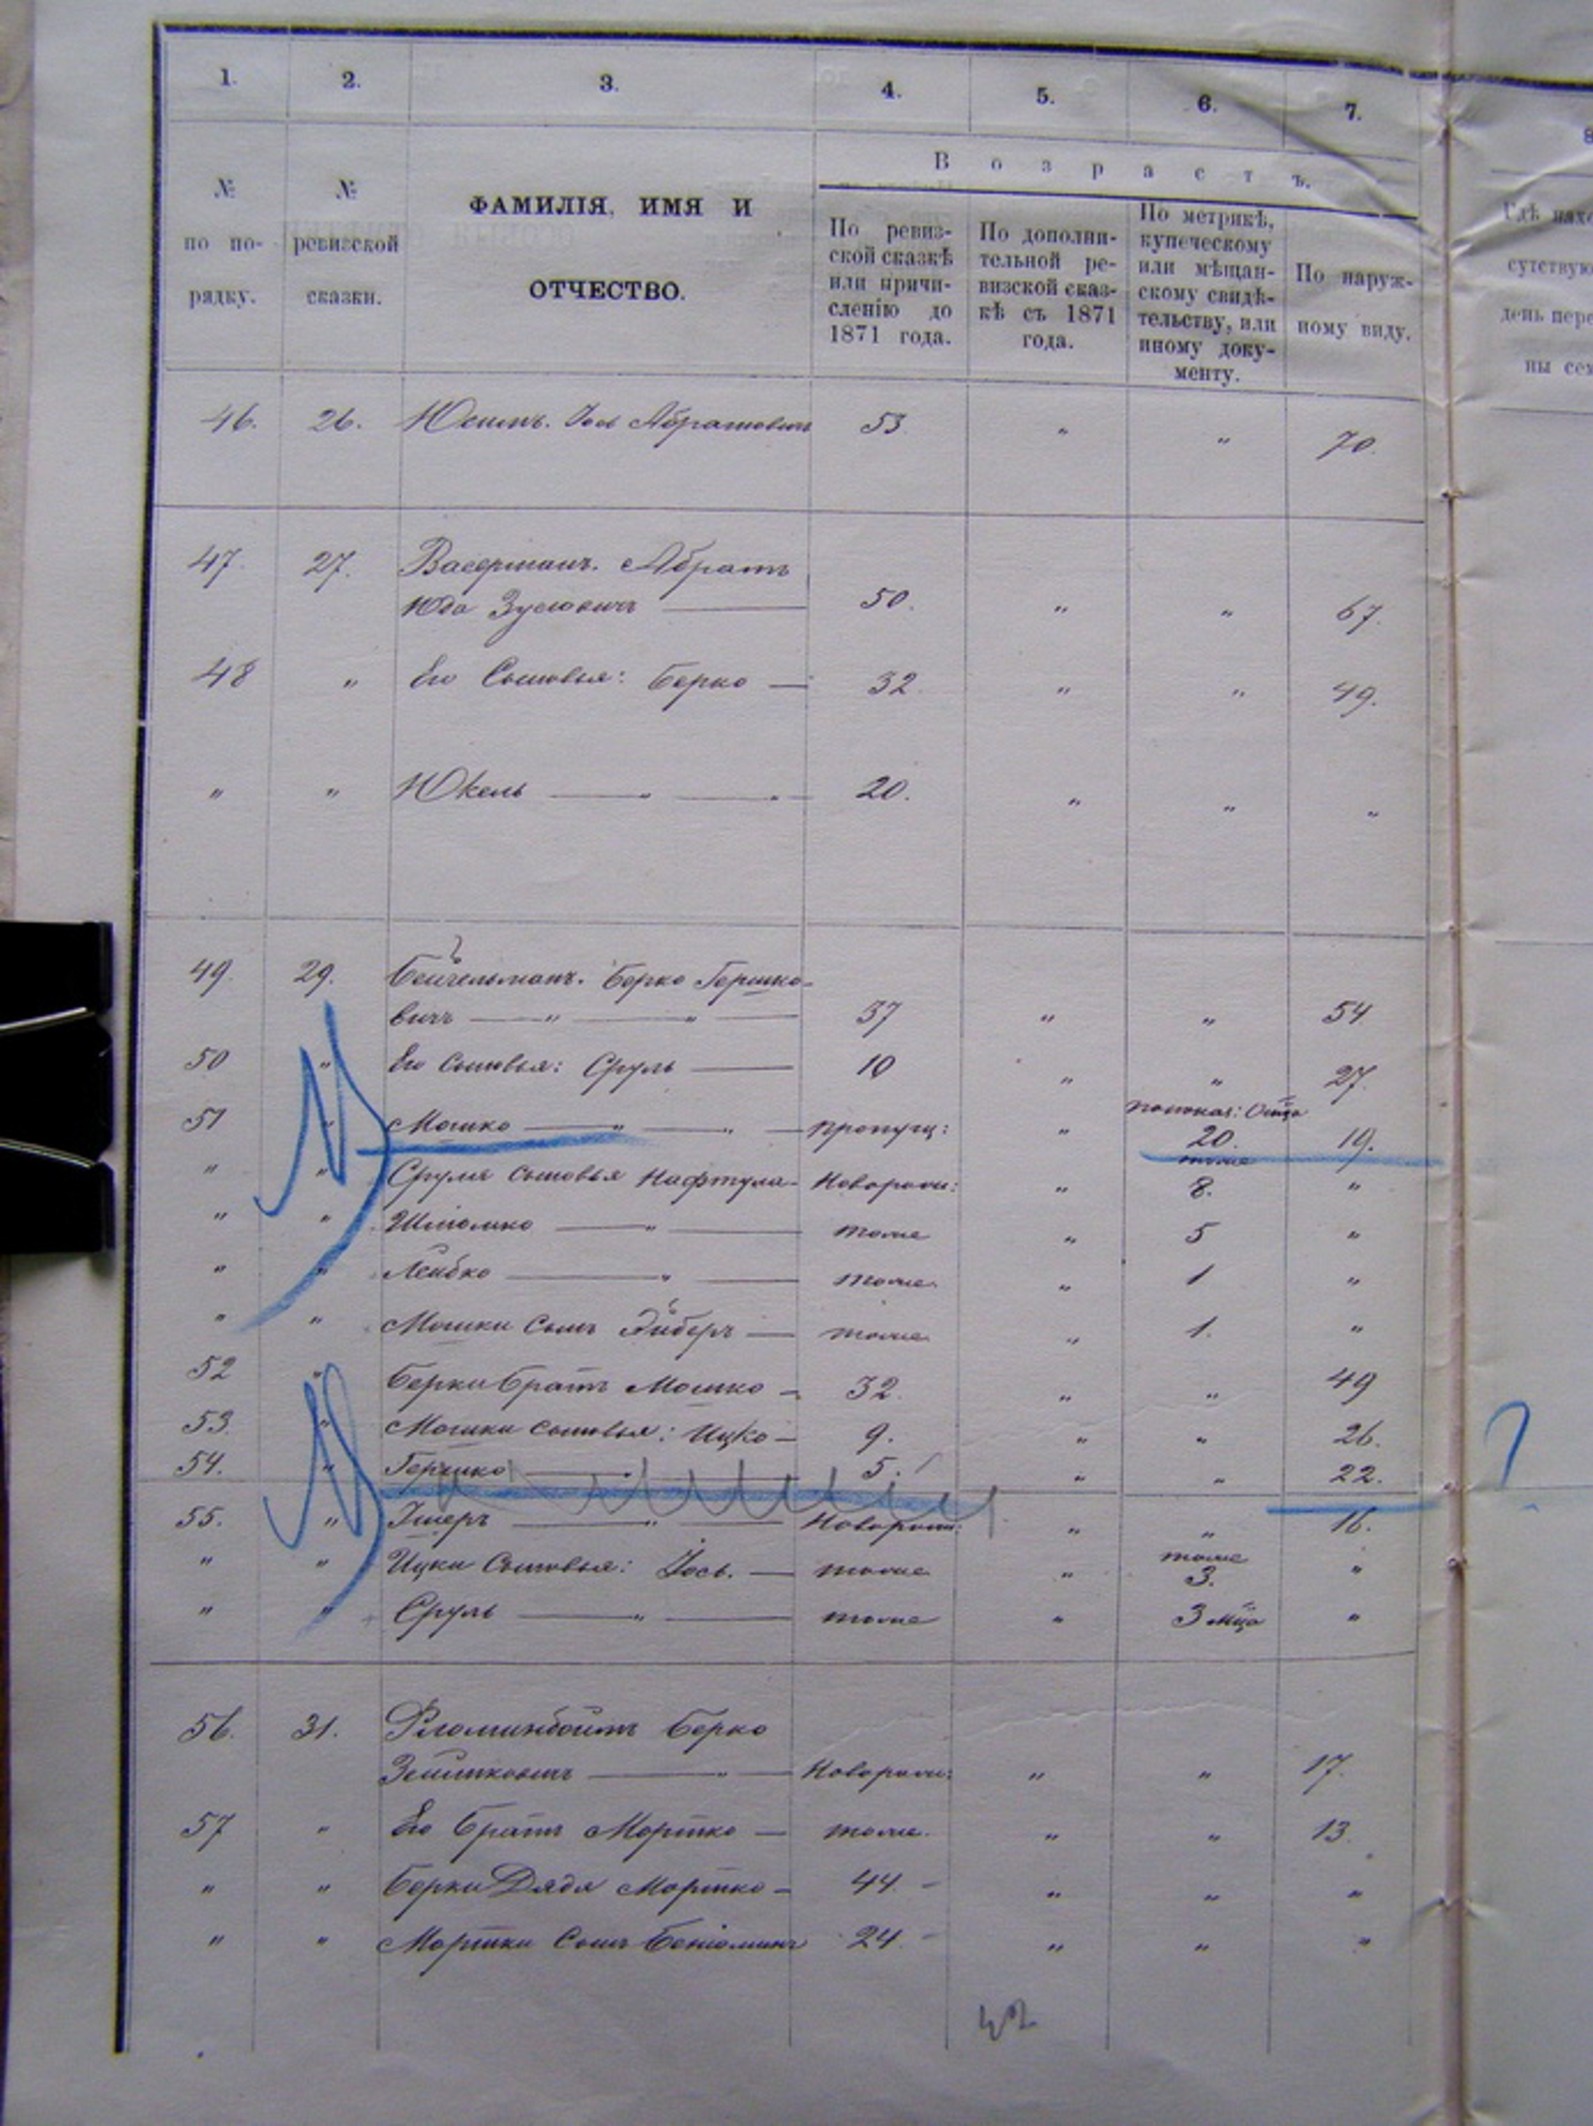 1. 2. 3. 4. 5. 6. 7.
№ по по-рядку.
№ ревизской сказки.
ФАМИЛІЯ, ИМЯ И
ОТЧЕСТВО.
Возрастъ.
По ревиз-
ской сказкѣ
или причи-
сленію до
1871 года.
По дополни-
тельной ре-
визской сказ-
кѣ съ 1871
года.
По метрикѣ,
купеческому
или мѣщан-
скому свидѣ-
тельству, или
иному доку-
менту.
По наруж-
ному виду.
46. 26. Абрамовичъ 53 " " 70.
47. 27. Васерманъ. Абрамъ
Юда Зусовичъ 50. " " 67.
48 " Его Сыновья: Берко 32. " " 49.
" " Юкель " " 20. " " "
49. 29. Бейгельманъ. Берко Гершко-
вичъ " " 37 " " 54
50 " Его Сыновья: Сруль 10 " " 27.
51 " Мошко " " пропущ: " показ: Отца 20. 19.
" " Сруля сыновья Нафтула Новорож: " тоже 8. "
" " Шломко " тоже " 5 "
" " Лейбко " тоже. " 1 "
" " Мошки сынъ тоже " 1. "
52 " Берки братъ Мошко 32. " " 49
53. " Мошки сыновья: Ицко 9. " " 26.
54. " Гершко " 5. " " 22.
55. " " Новорож: " " 16.
" " Ицки Сыновья: Іось. тоже " тоже 3. "
" " Сруль " тоже " 3 мца "
56. 31. Фломинбоймъ Берко
" Новорож: " " 17.
57 " Его братъ Мортко тоже. " " 13.
" " Берки Дядя Мортко 44. " " "
" " Мортки сынъ Беніоминъ 24. " " "
8
Гдѣ
сутствую
день пере
ны сем